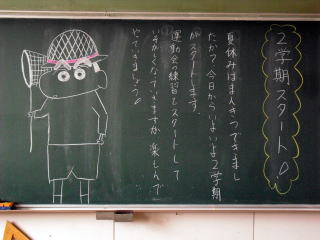 2学期スタート!
夏休みはまんきつできまし
たか?今日からいよいよ2学期
がスタートします。
運動会の練習もスタートして
いそがしくなっていきますが、楽しんで
やっていきましょう